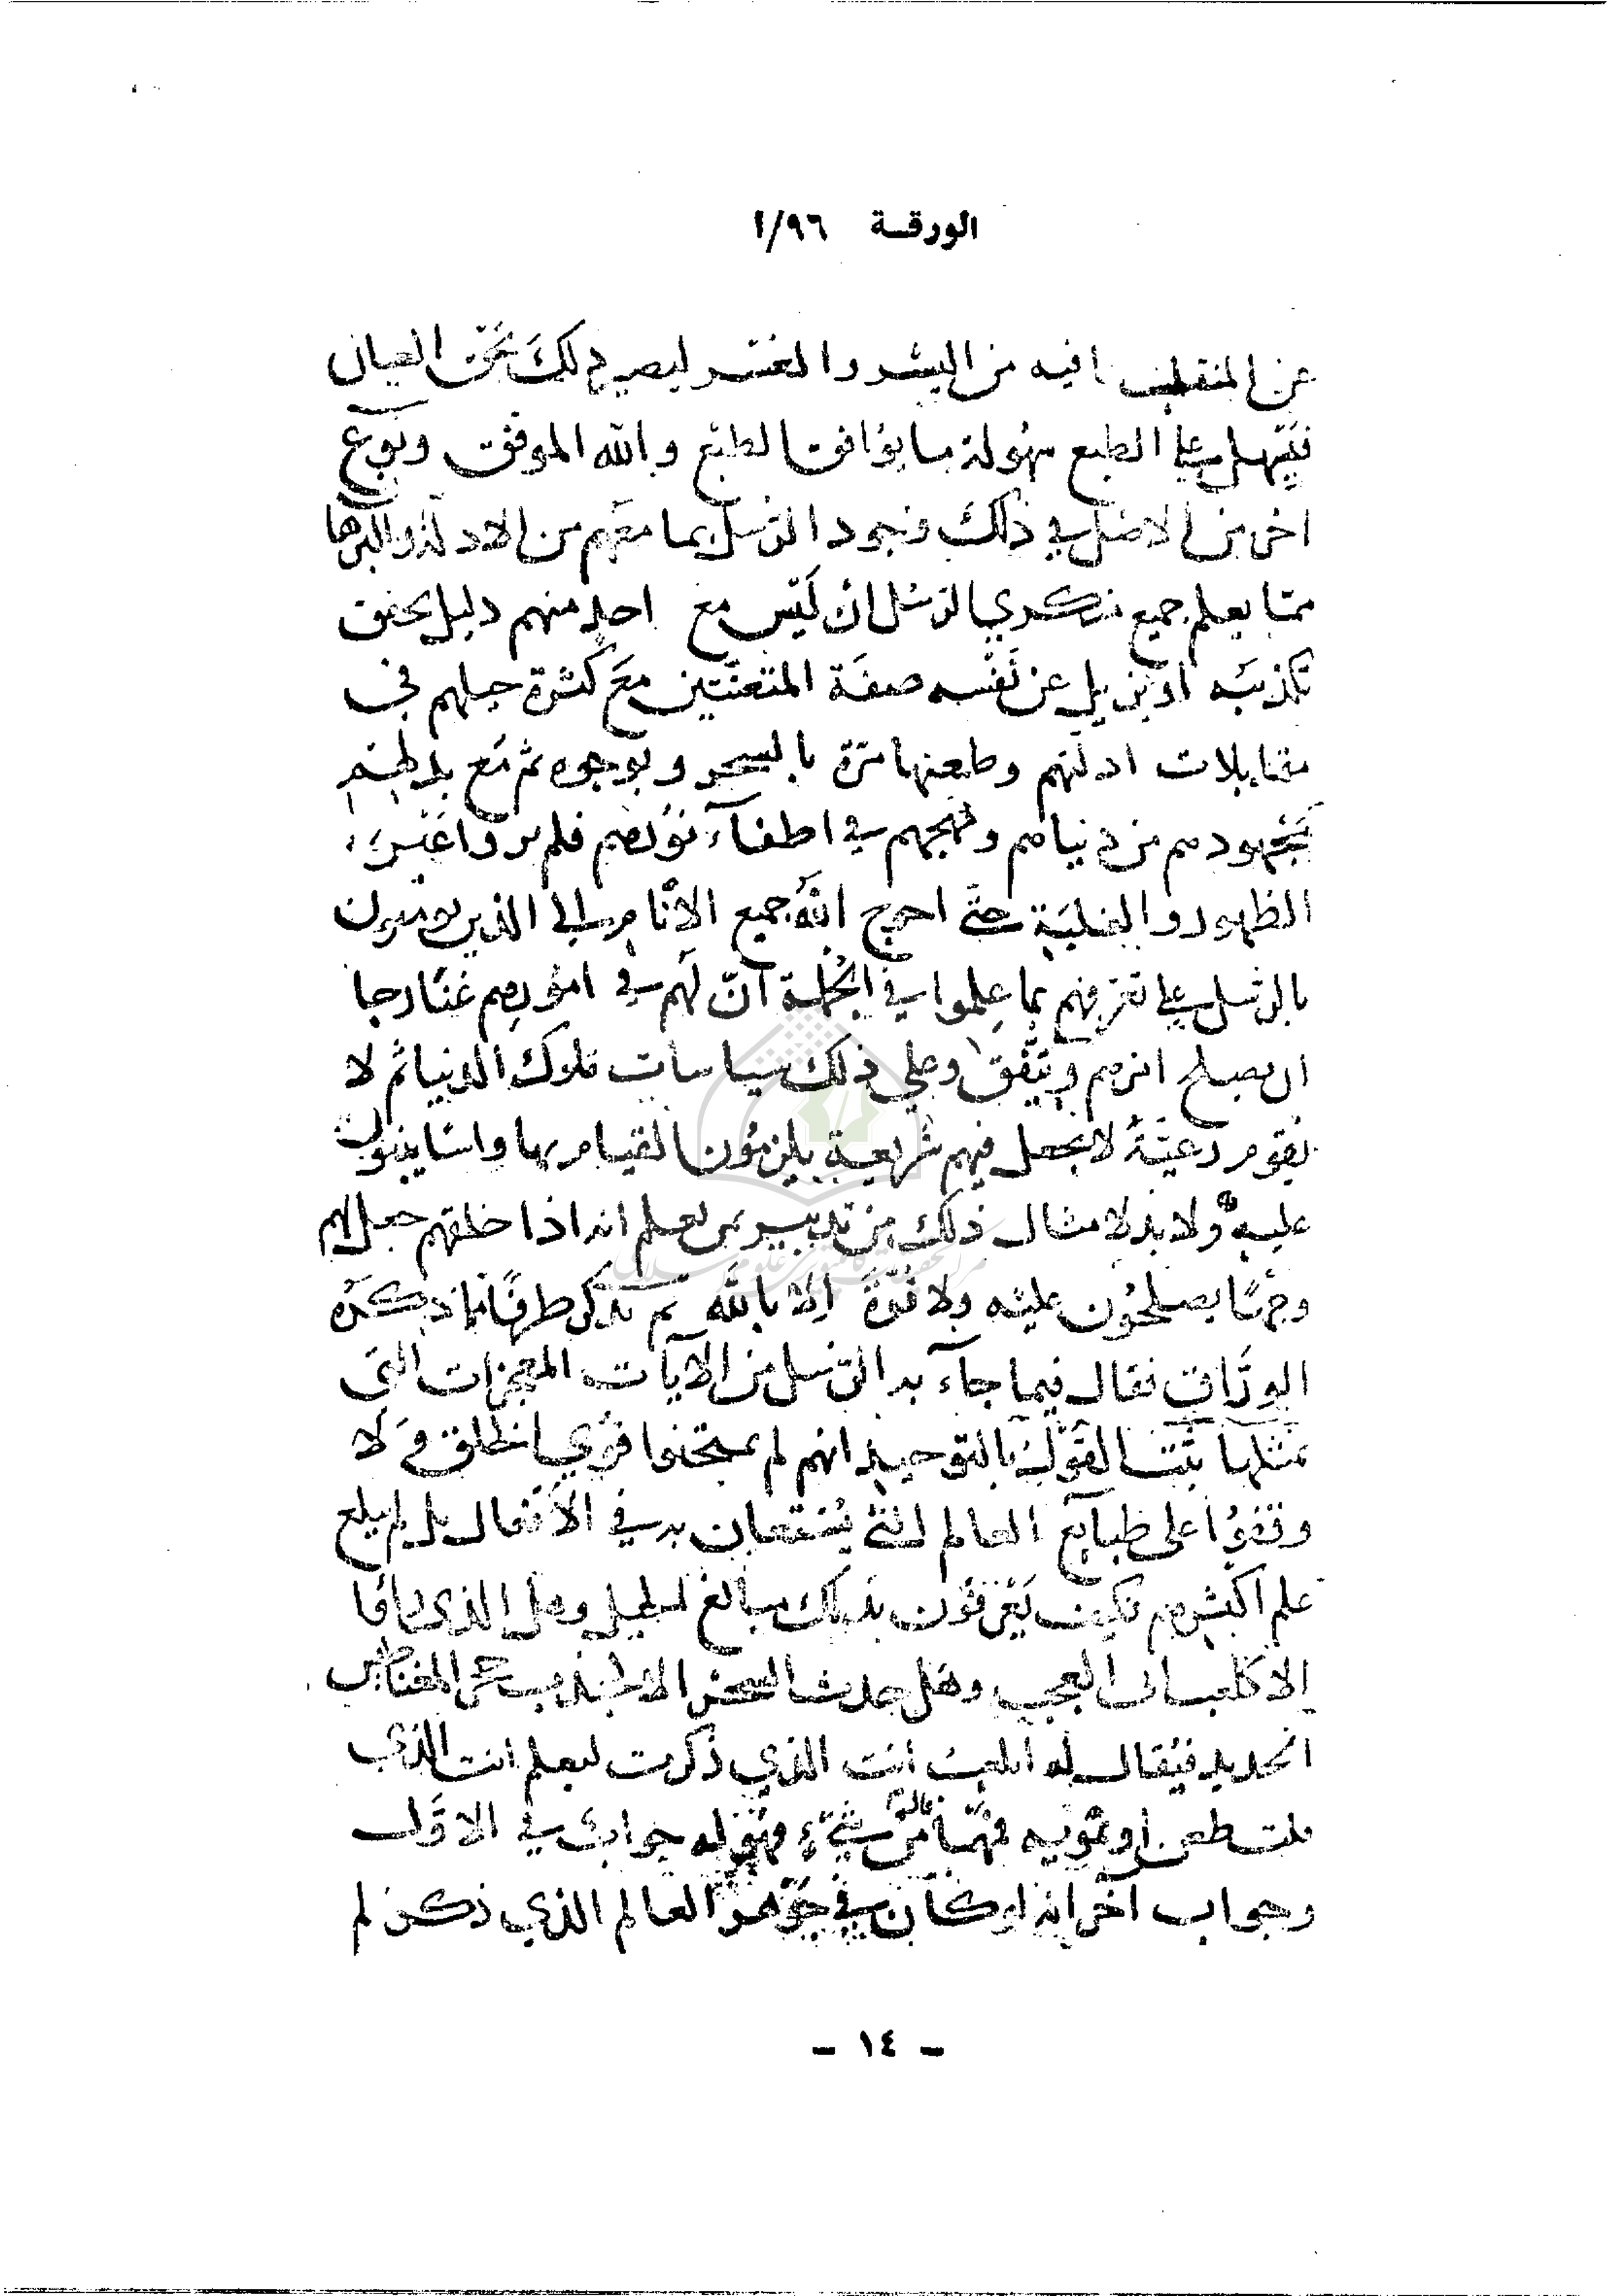 الورقة ٩٦/ا
عن المنقلب فيه من اليسر والعسر ليصير ذلك تحت العيان
فيسهل على الطبع سهولة ما يوافق الطبع والله الموفق ونوع
اخر من الاصل في ذلك وجود الرسل بما معهم من الادلة والبرها
مما يعلم جميع منكري الرسل ان ليس مع احد منهم دليل يحقق
تكذيبه او يزيل عن نفسه صفة المتعنتين مع كثرة حيلهم في
مقابلات ادلتهم وطعنها مرة بالسحر وبوجوه ثم مع بذلهم
مجهودهم من دنياهم ومهجهم في اطفآء نورهم فلم يروا غير
الظهور والغلبة حتى احوج الله جميع الانام الى الذين يومنون
بالرسل على تعرفهم بما علموا في الجملة ان لهم في امورهم غنا رجا
ان يصلح امرهم ويتفق وعلى ذلك سياسات ملوك الدنيا ثم لا
يقوم رعية لا يجعل فيهم شريعة يلزمون القيام بها واسا يبنون
عليه ولا بد لامثال ذلك من تدبير من يعلم انه اذا خلقهم جعل لهم
وجها يصلحون عليه ولا قوة الا بالله ثم نذكر طرفا مما ذكره
الوراق فقال فيما جآء به الرسل من الآيات المعجزات التي
بمثلها يثبت القول بالتوحيد انهم لم يمتحنوا قوي الخلق ولا
وقفوا على طبايع العالم التي يستعان به في الافعال بل لم يبلغ
علم اكثرهم فكيف يعرفون بذلك مبالغ الحيل وهل الذى
الا كلعب الى العجب وهل حدث السحر الا لجذب حجر المغناطيس
الحديد فيقال له ابلغت انت الذي ذكرت ليعلم انت الذي
قلت طعن او تمويه فمهما قال من شيء فهو له جواب في الاول
وجواب آخر انه لو كان في جوهر العالم الذي ذكر لم
- ١٤ -